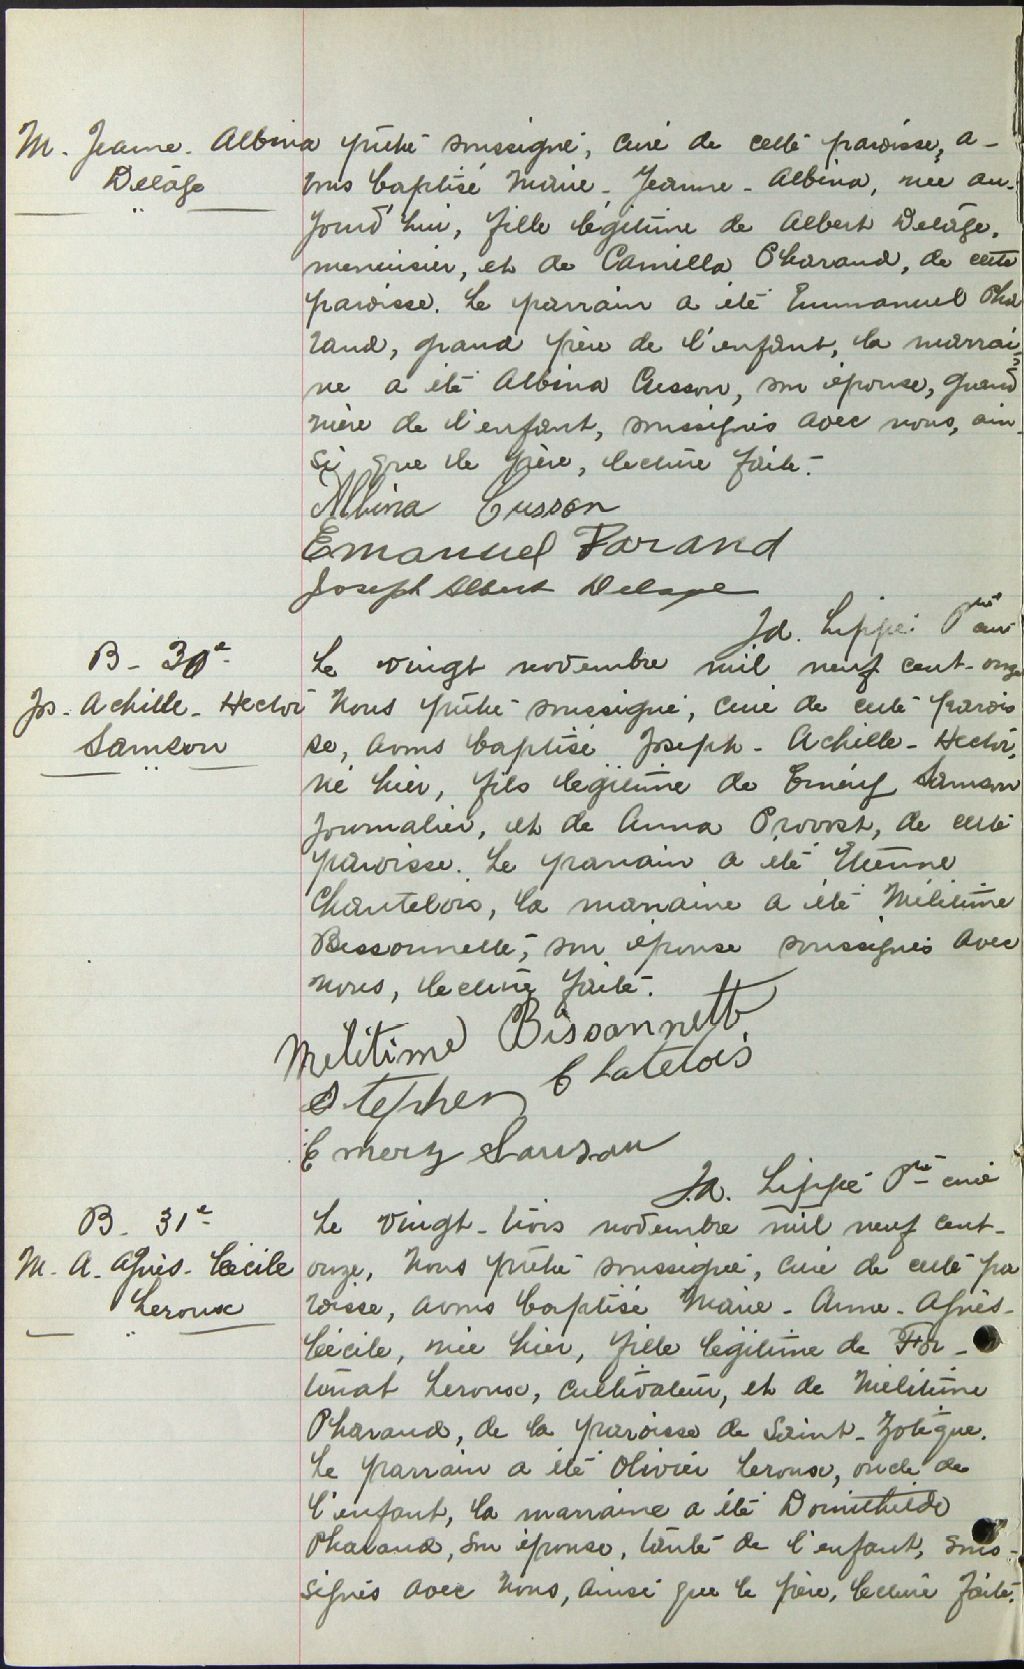 M. Jeanne. Albina prêtre soussigné, curé de cette paroisse, a-
Delâge vons baptisé Marie-Jeanne-Albina, née au-
jourd'hui, fille légitime de Albert Delâge,
menuisier, et de Camilla Pharand, de cette
paroisse. Le parrain a été Emmanuel Pha
rand, grand père de l'enfant, la marrai-
ne a été Albina Cusson, son épouse, grand
mère de l'enfant, soussignés avec nous, ain-
si que le père, lecture faite.
Albina Cusson
Emanuel Farand
Joseph Albert Delage
Jd. Lippé Ptre curé
B- 30e Le vingt novembre mil neuf cent-onze
Jos-Achille-Hector Nous prêtre soussigné, curé de cette parois
Samson se, avons baptisé Joseph-Achille-Hector,
né hier, fils légitime de Eméry Samson
journalier, et de Anna Provost, de cette
paroisse. Le parrain a été Etienne
Chantelois, la marraine a été Mélitime
Bessonnette, son épouse soussignés avec
nous, lecture faite.
Melitime Bissonnette
Stephen Chatelois
Emery Samson
J.A. Lippé Ptre curé
B- 31e Le vingt-trois novembre mil neuf cent-
M-A-Agnès-Cécile onze, Nous prêtre soussigné, curé de cette pa
Leroux roisse, avons baptisé Marie-Anne-Agnès-
Cécile, née hier, fille légitime de For-
tunat Leroux, cultivateur, et de Mélitime
Pharand, de la paroisse de Saint-Zotique.
Le parrain a été Olivier Leroux, oncle de
l'enfant, la marraine a été Domithilde
Pharand, son épouse, tante de l'enfant, sous-
signés avec Nous, ainsi que le père, lecture faite.